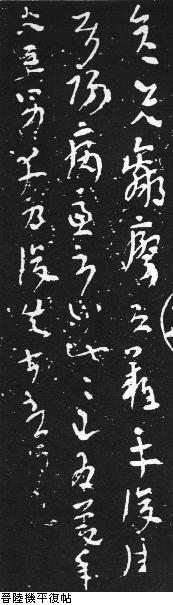 彥先羸瘵恐難平復往
屬初病慮不止此〻已為慶承
使唯男幸為復失前憂耳
晉陸機平復帖